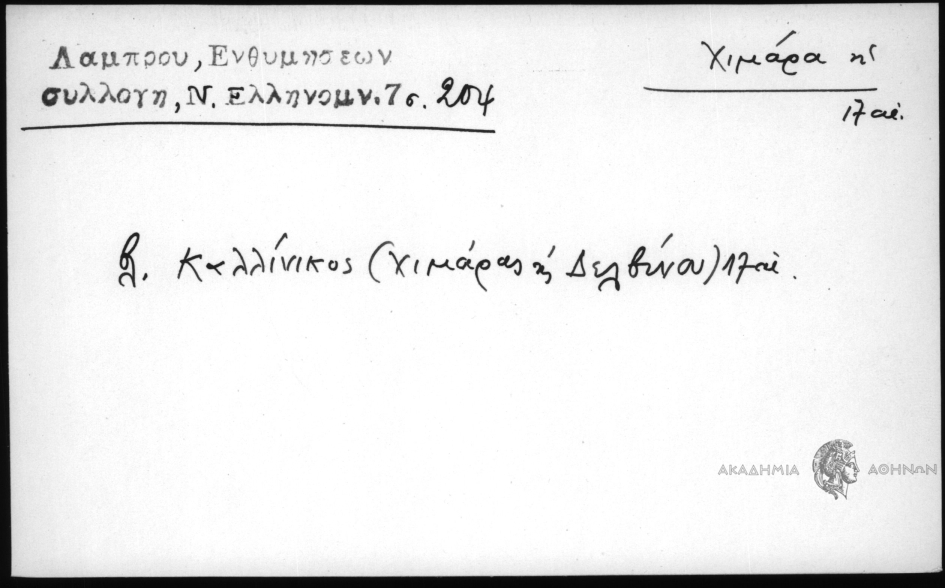 Λαμπρου, Ενθυμησεων
συλλογη, Ν. Ελληνομν. 7 σ. 204
Χιμάρα ἡ
17 αἰ.
βλ. Καλλίνικος (Χιμάρας κ' Δελβίνου) 17 αἰ.
ΑΚΑΔΗΜΙΑ ΑΘΗΝΩΝ